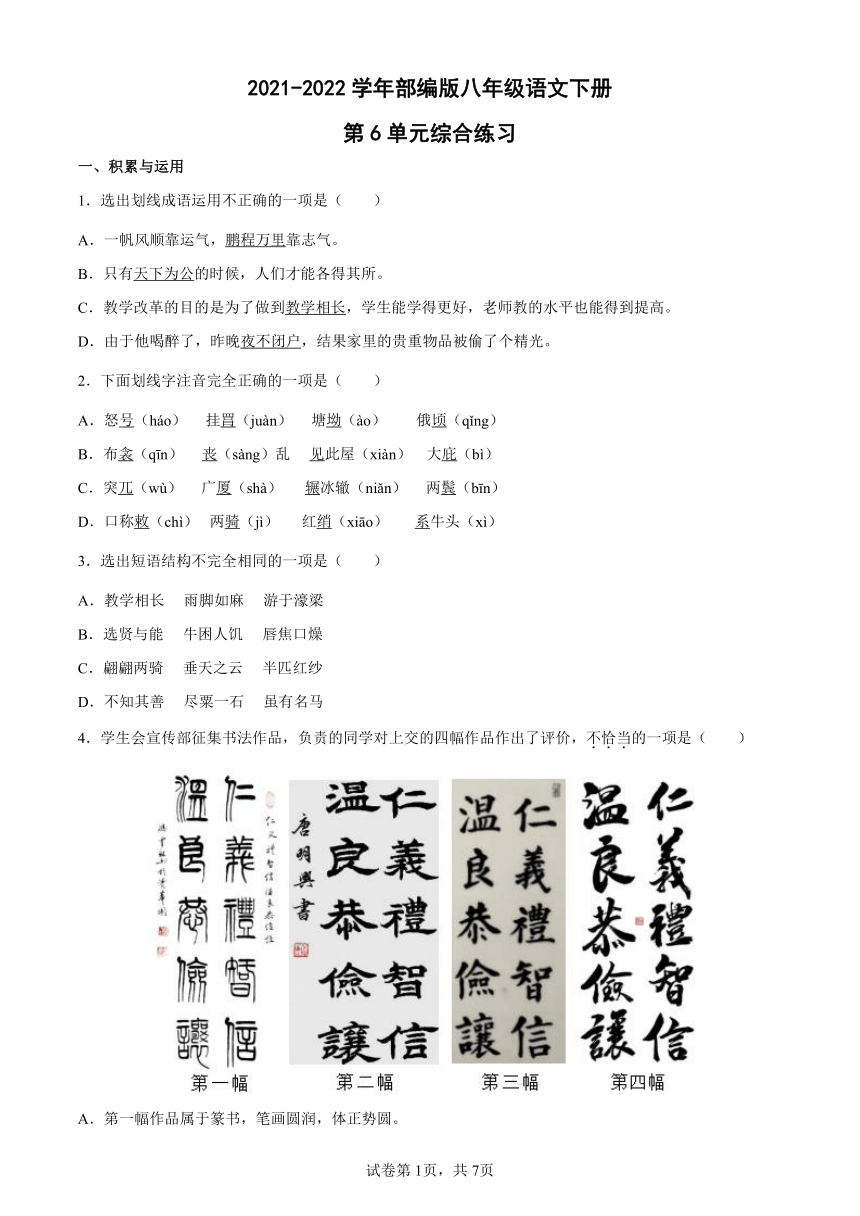 2021-2022学年部编版八年级语文下册
第6单元综合练习
一、积累与运用
1．选出划线成语运用不正确的一项是（　　）
A．一帆风顺靠运气，鹏程万里靠志气。
B．只有天下为公的时候，人们才能各得其所。
C．教学改革的目的是为了做到教学相长，学生能学得更好，老师教的水平也能得到提高。
D．由于他喝醉了，昨晚夜不闭户，结果家里的贵重物品被偷了个精光。
2．下面划线字注音完全正确的一项是（　　）
A．怒号（háo）　挂罥（juàn）　塘坳（ào）　俄顷（qǐng）
B．布衾（qīn）　丧（sàng）乱　见此屋（xiàn）　大庇（bì）
C．突兀（wù）　广厦（shà）　辗冰辙（niǎn）　两鬓（bīn）
D．口称敕（chì）　两骑（jì）　红绡（xiāo）　系牛头（xì）
3．选出短语结构不完全相同的一项是（　　）
A．教学相长　雨脚如麻　游于濠梁
B．选贤与能　牛困人饥　唇焦口燥
C．翩翩两骑　垂天之云　半匹红纱
D．不知其善　尽粟一石　虽有名马
4．学生会宣传部征集书法作品，负责的同学对上交的四幅作品作出了评价，不恰当的一项是（　　）
仁義禮智信
温良恭儉讓
仁義禮智信
温良恭儉讓
唐明興書
仁義禮智信
温良恭儉讓
仁義禮智信
温良恭儉讓
第一幅　第二幅　第三幅　第四幅
A．第一幅作品属于篆书，笔画圆润，体正势圆。
试卷第1页，共7页